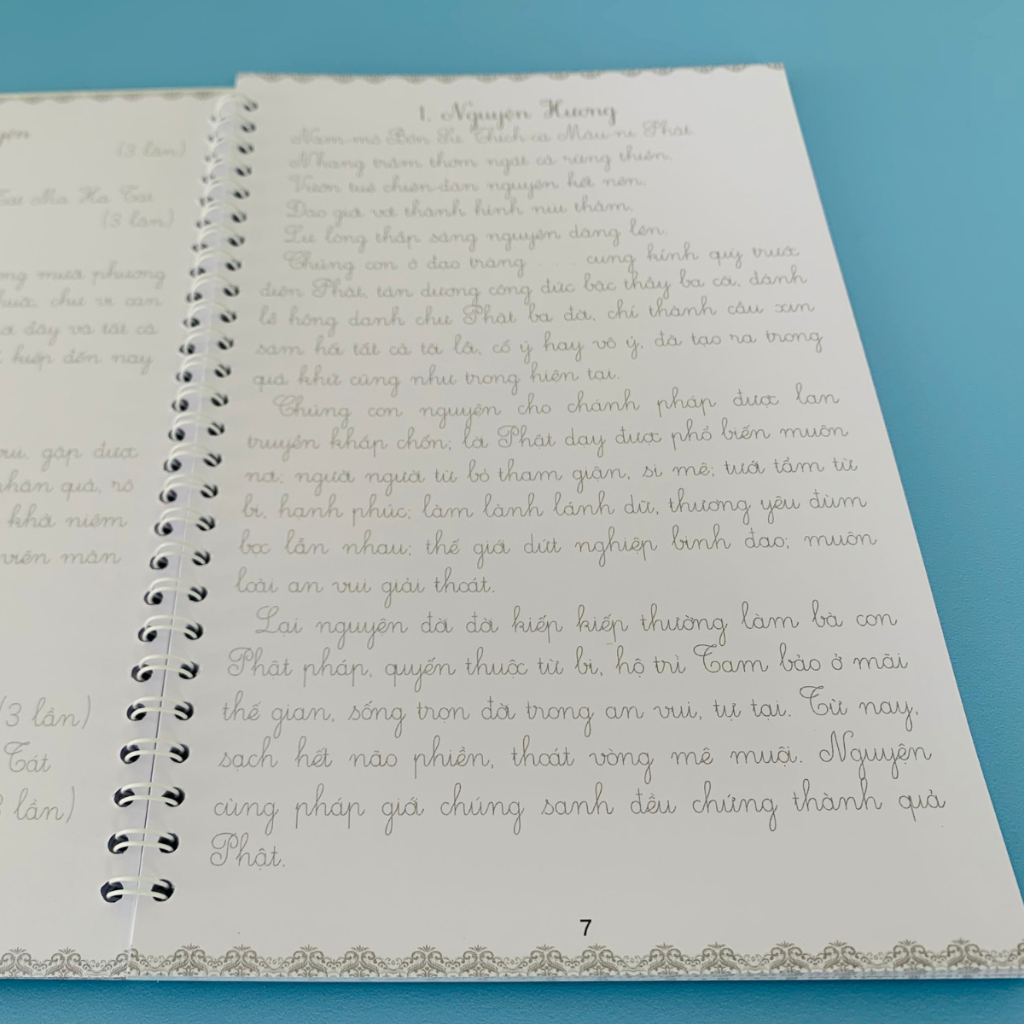 yện
(3 lần)
Tát Ma Ha Tát
(3 lần)
ong mười phương
thuộc, chư vị can
ơi đây và tất cả
kiếp đến nay
rui, gặp được
nhân quả, rõ
khởi niệm
viên mãn
(3 lần)
Tát
lần)
1. Nguyện Hương
Nam mô Bổn Sư Thích-ca Mâu-ni Phật
Nhang trầm thơm ngát cả rừng thiền,
Vườn tuệ chiên-đàn nguyện hết nên,
Đao giới vót thành hình núi thẳm,
Lư lòng thắp sáng nguyện dâng lên.
Chúng con ở đạo tràng .... cung kính quỳ trước
điện Phật, tán dương công đức bậc thầy ba cõi, đảnh
lễ hồng danh chư Phật ba đời, chí thành cầu xin
sám hối tất cả tội lỗi, cố ý hay vô ý, đã tạo ra trong
quá khứ cũng như trong hiện tại.
Chúng con nguyện cho chánh pháp được lan
truyền khắp chốn; lời Phật dạy được phổ biến muôn
nơi; người người từ bỏ tham giận, si mê; tưới tẩm từ
bi, hạnh phúc; làm lành lánh dữ, thương yêu đùm
bọc lẫn nhau; thế giới dứt nghiệp binh đao; muôn
loài an vui giải thoát.
Lại nguyện đời đời kiếp kiếp thường làm bà con
Phật pháp, quyến thuộc từ bi, hộ trì Tam bảo ở mãi
thế gian, sống trọn đời trong an vui, tự tại. Từ nay,
sạch hết não phiền, thoát vòng mê muội. Nguyện
cùng pháp giới chúng sanh đều chứng thành quả
Phật.
7